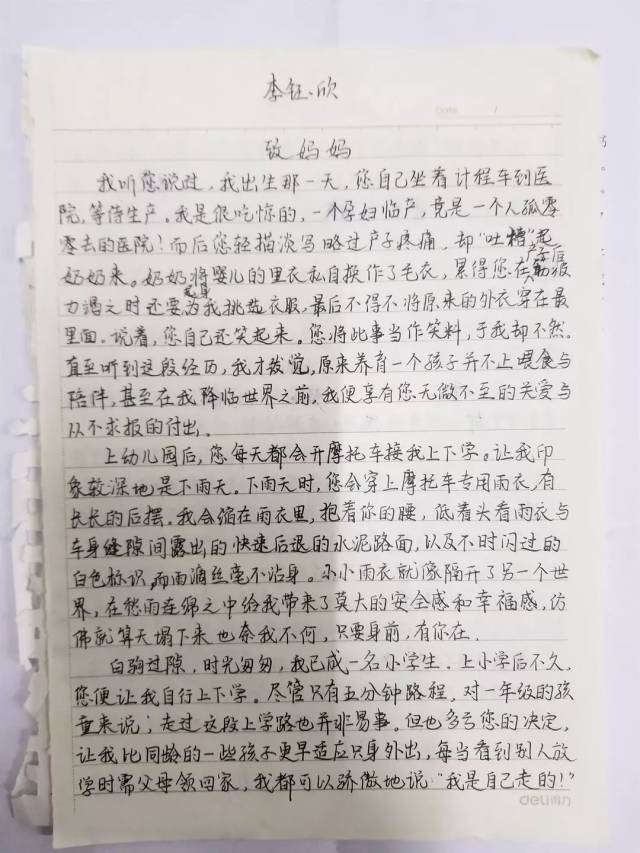 李钰欣
Date
致妈妈
我听您说过，我出生那一天，您自己坐着计程车到医
院，等待生产。我是很吃惊的，一个孕妇临产，竟是一个人孤零
零去的医院！而后您轻描淡写略过产子疼痛，却“吐糟”起
奶奶来。奶奶将婴儿的里衣私自换作了毛衣，累得您在产子后筋疲
力竭之时还要起身为我挑选衣服，最后不得不将原来的外衣穿在最
里面。说着，您自己还笑起来。您将此事当作笑料，于我却不然。
直至听到这段经历，我才发觉，原来养育一个孩子并不止喂食与
陪伴，甚至在我降临世界之前，我便享有您无微不至的关爱与
从不求报的付出。
上幼儿园后，您每天都会开摩托车接我上下学。让我印
象较深地是下雨天。下雨天时，您会穿上摩托车专用雨衣，有
长长的后摆。我会缩在雨衣里，抱着你的腰，低着头看雨衣与
车身缝隙间露出的快速后退的水泥路面，以及不时闪过的
白色标识，而雨滴丝毫不沾身。小小雨衣就像隔开了另一个世
界，在愁雨连绵之中给我带来了莫大的安全感和幸福感，仿
佛就算天塌下来也奈我不何，只要身前，有你在。
白驹过隙，时光匆匆，我已成一名小学生。上小学后不久，
您便让我自行上下学。尽管只有五分钟路程，对一年级的孩
童来说；走过这段上学路也并非易事。但也多亏您的决定，
让我比同龄的一些孩子更早适应只身外出，每当看到别人放
学时需父母领回家，我都可以骄傲地说“我是自己走的！”
deli得力